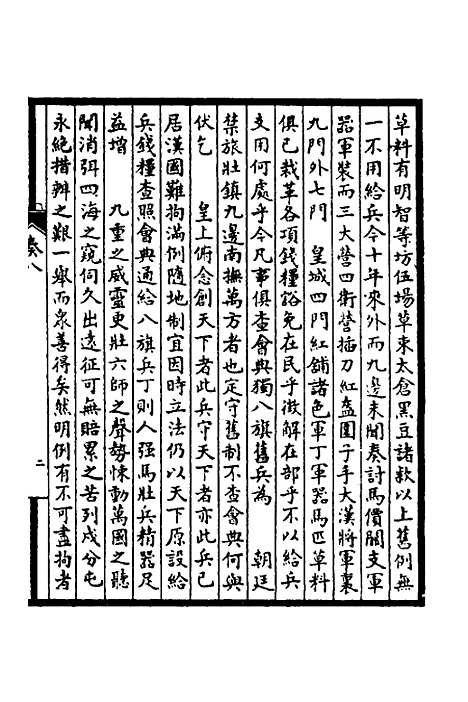 草料有明智等坊伍場草束太倉黑豆諸款以上舊例無
一不用給兵今十年來外而九邊未聞奏討馬價關支軍
器軍裝而三大營四衛營插刀紅盔圍子手大漢將軍裏
九門外七門　皇城四門紅鋪諸色軍丁軍器馬匹草料
俱已裁革各項錢糧豁免在民乎徵解在部乎不以給兵
支用何處乎今凡事俱查會典獨八旗舊兵為　朝廷
禁旅壯鎮九邊南撫萬方者也定守舊制不查會典何與
伏乞　皇上俯念創天下者此兵守天下者亦此兵已
居漢國難拘滿例隨地制宜因時立法仍以天下原設給
兵錢糧查照會典通給八旗兵丁則人强馬壯兵精器足
益增　九重之威靈更壯六師之聲勢悚動萬國之聽
聞消弭四海之窺伺久出遠征可無賠累之苦列戍分屯
永絕措辦之艱一舉而衆善得矣然明例有不可盡拘者
奏八
二